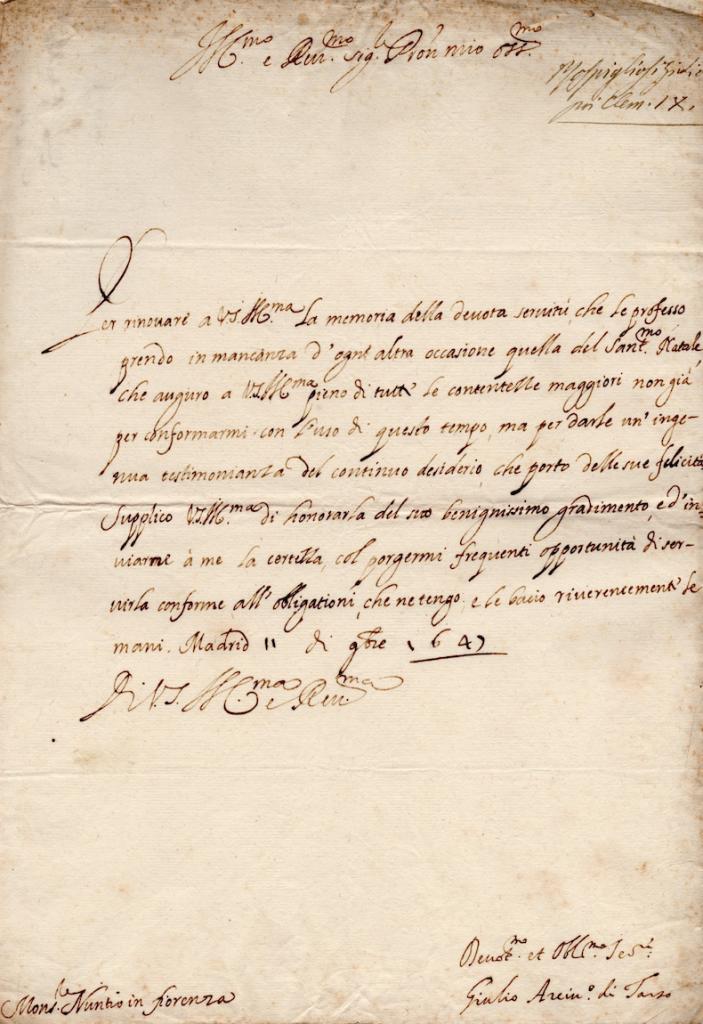 Ill.mo e Rev.mo sig.re Pron mio oss.mo
Rospigliosi Giulio
poi Clem. IX.
Per rinovare a V.S. Ill.ma la memoria della devota servitù che le professo
prendo in mancanza d'ogni altra occasione quella del Sant.mo Natale,
che auguro a V.S. Ill.ma pieno di tutte le contentezze maggiori non già
per conformarmi con l'uso di questo tempo, ma per darle un' inge-
nua testimonianza del continuo desiderio, che porto delle sue felicità,
Supplico V.S. Ill.ma di honorarla del suo benignissimo gradimento, e d'in-
viarne à me la certezza, col porgermi frequenti opportunità di ser-
virla conforme all' obligationi, che ne tengo. e le bacio riverentemente le
mani. Madrid 11 di 9bre 1647
Di V.S. Ill.ma e Rev.ma
Devot.mo et Obl.mo Ser.re
Giulio Arciv.o di Tarso
Mons.re Nuntio in fiorenza